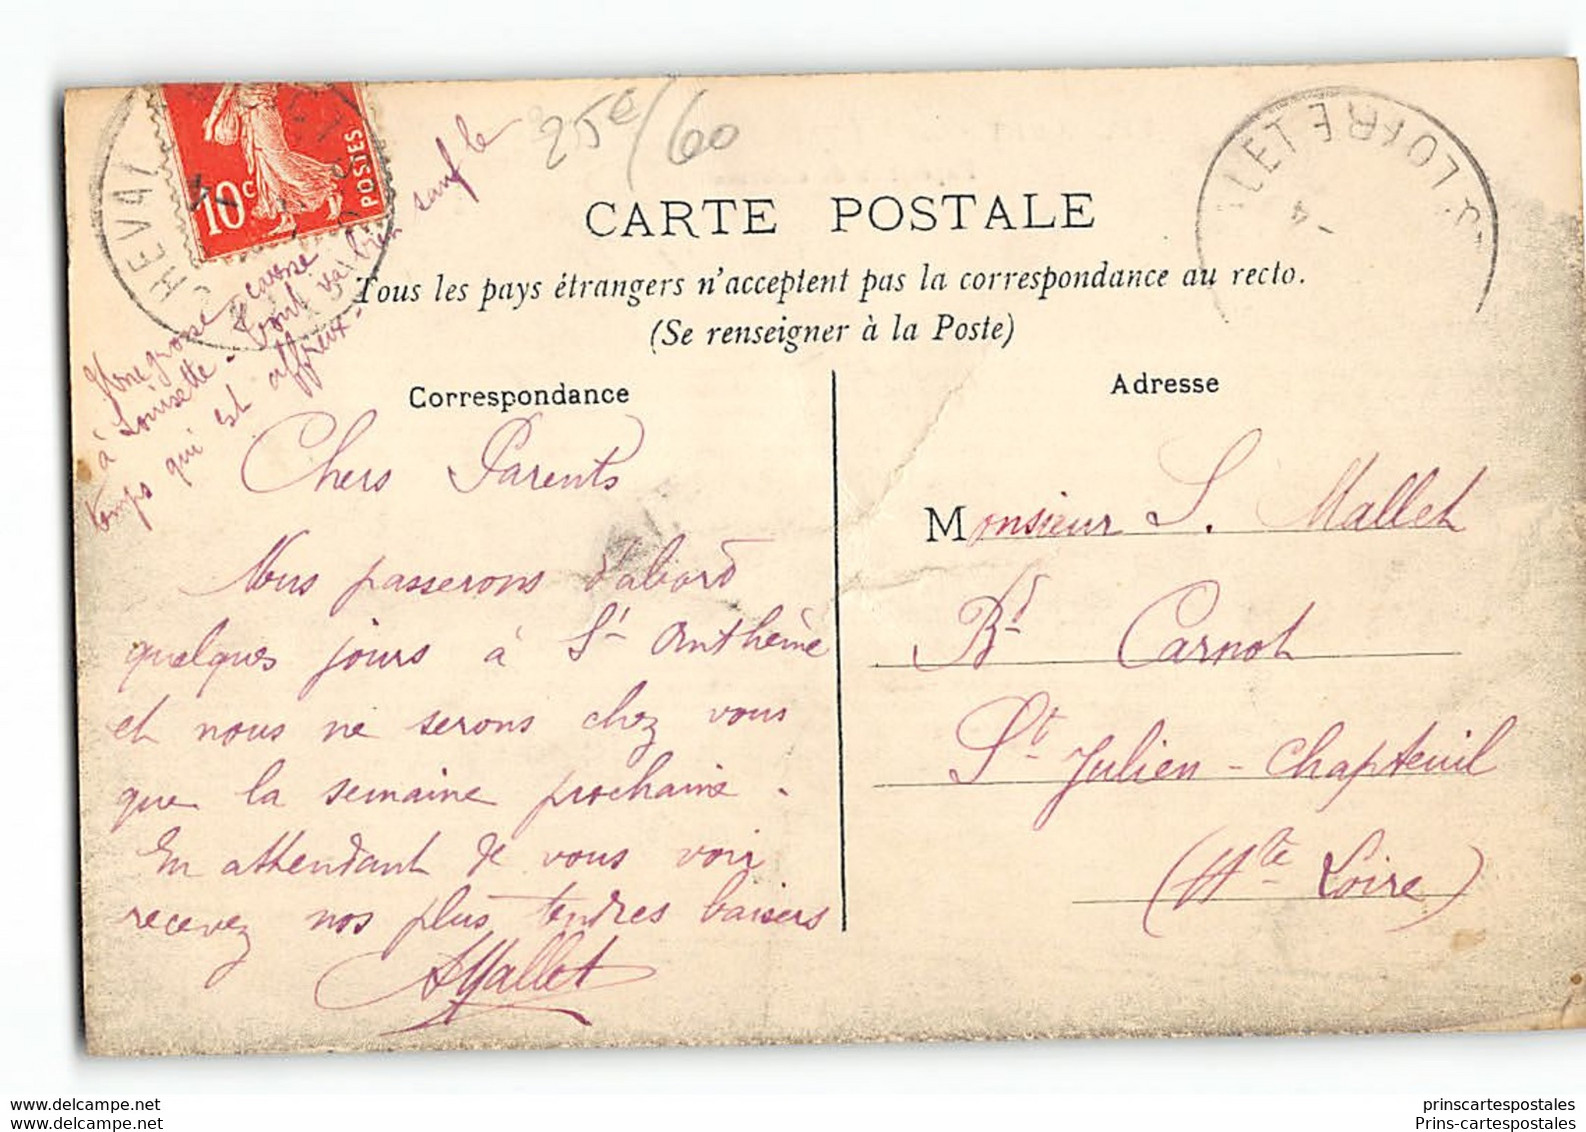 25e/60
CARTE POSTALE
Tous les pays étrangers n'acceptent pas la correspondance au recto.
(Se renseigner à la Poste)
Correspondance
Adresse
10c
POSTES
CHEVAL
LOIRE
- 4
Une grosse caresse
à Louisette - Tout va bien sauf le
temps qui est affreux -
Chers Parents
Nous passerons d'abord
quelques jours à St Anthème
et nous ne serons chez vous
que la semaine prochaine .
En attendant de vous voir
recevez nos plus tendres baisers
AMallet
Monsieur S. Mallet
Bd Carnot
St Julien - Chapteuil
(Hte Loire)
www.delcampe.net
www.delcampe.net
prinscartespostales
Prins-cartespostales